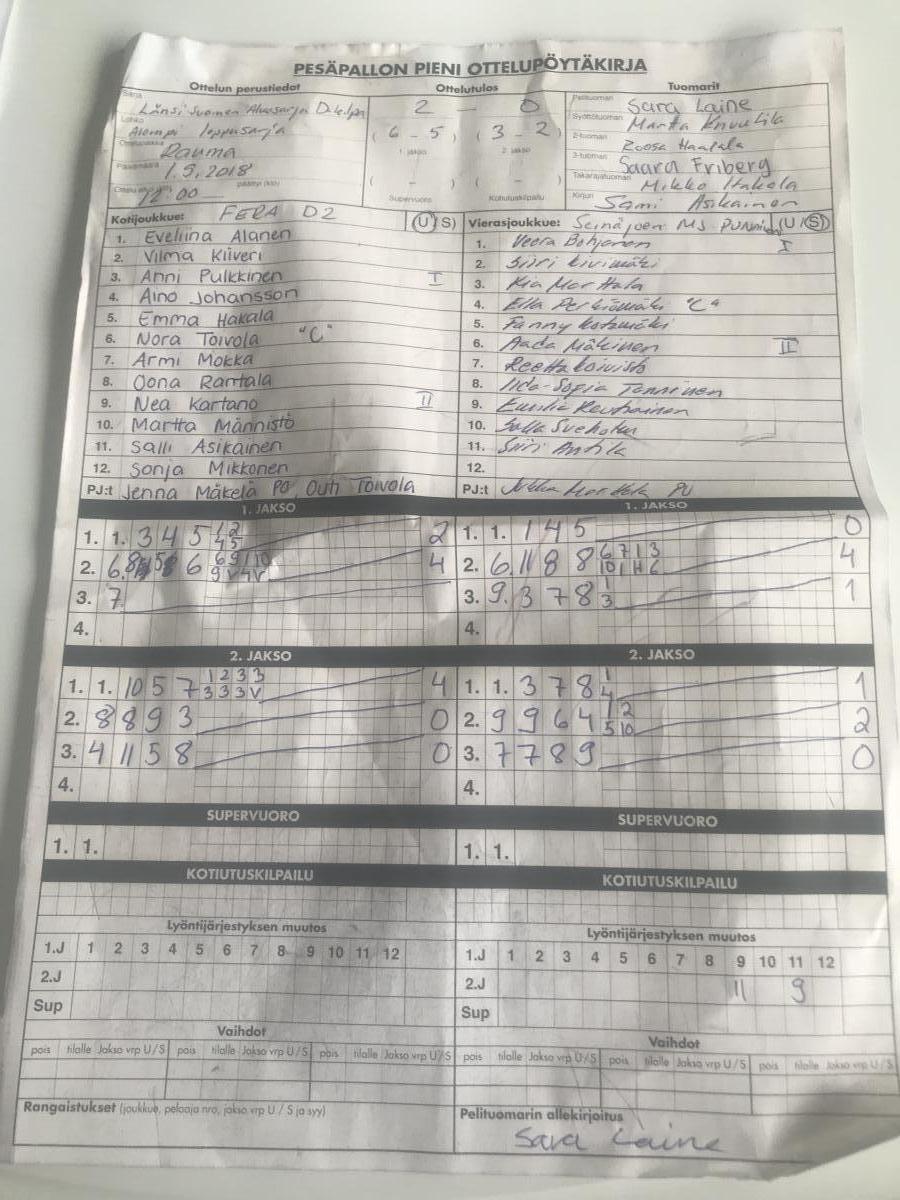 PESÄPALLON PIENI OTTELUPÖYTÄKIRJA
Ottelun perustiedot Ottelutulos Tuomarit
Sarja Länsi-Suomen Aluesarja D
Lohko Alempi loppusarja
Ottelupaikka Rauma
Päivämäärä 1.9.2018
Ottelu 12:00 päättyi (klo)
2 - 0
( 6 - 5 ) ( 3 - 2 )
1. jakso 2. jakso
( - ) ( - )
Supervuoro Kotiutuskilpailu
Pelituomari Sara Laine
Syöttötuomari Marta Knuutila
2-tuomari Roosa Haapala
3-tuomari Saara Friberg
Takarajatuomari Mikko Hakala
Kirjuri Sami Asikainen
Kotijoukkue: FERA D2 (U/S)
1. Eveliina Alanen
2. Vilma Kiiveri
3. Anni Pulkkinen I
4. Aino Johansson
5. Emma Hakala
6. Nora Toivola "C"
7. Armi Mokka
8. Oona Rantala
9. Nea Kartano II
10. Martta Männistö
11. Salli Asikainen
12. Sonja Mikkonen
PJ:t Jenna Mäkelä PO, Outi Toivola
Vierasjoukkue: Seinäjoen MJ (U/S)
1. Veera I
2. Siiri Kivimäki
3. Kia Marttala
4. Ella Perkiömäki "C"
5. Fanny
6. Aada Mäkinen II
7. Reetta Koivisto
8. Iida-Sofia Tanninen
9. Emilia
10. Salla
11. Siiri Anttila
12.
PJ:t Jukka Marttala PU
1. JAKSO 1. JAKSO
1. 1. 3 4 5 2
2. 6. 6 4
3. 7
4.
1. 1. 1 4 5 0
2. 6. 11 8 8 4
3. 9. 3 7 8 1 3 1
4.
2. JAKSO 2. JAKSO
1. 1. 10 5 7 1 2 3 3 4
3 3 3 V
2. 8 8 9 3 0
3. 4 11 5 8 0
4.
1. 1. 3 7 8 1 4 1
2. 9 9 6 4 1 2 2
5 10
3. 7 7 8 9 0
4.
SUPERVUORO SUPERVUORO
1. 1. 1. 1.
KOTIUTUSKILPAILU KOTIUTUSKILPAILU
Lyöntijärjestyksen muutos
1.J 1 2 3 4 5 6 7 8 9 10 11 12
2.J
Sup
Lyöntijärjestyksen muutos
1.J 1 2 3 4 5 6 7 8 9 10 11 12
2.J 11 9
Sup
Vaihdot
pois tilalle Jakso vrp U/S pois tilalle Jakso vrp U/S pois tilalle Jakso vrp U/S
Vaihdot
pois tilalle Jakso vrp U/S pois tilalle Jakso vrp U/S pois tilalle Jakso vrp U/S
Rangaistukset (joukkue, pelaaja nro, jakso vrp U / S ja syy)
Pelituomarin allekirjoitus
Sara Laine